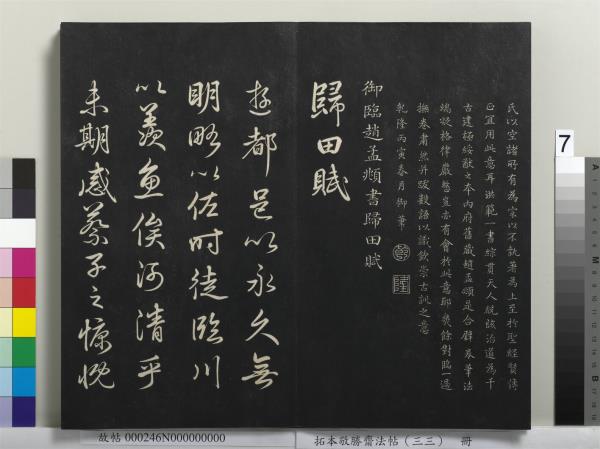 氏以空諸所有為宗以不執著為上至於聖經賢傳
正宜用此意耳洪範一書綜貫天人統賅治道為千
古建極綏猷之本內府舊藏趙孟頫是合卷筆法
端凝格律嚴整豈亦有會於此意耶幾餘對臨一過
撫卷肅然并跋數語以識欽崇古訓之意
乾隆丙寅春月御筆
隆
御臨趙孟頫書歸田賦
歸田賦
遊都邑以永久無
明略以佐時徒臨川
以羨魚俟河清乎
未期感蔡子之慷慨
7
故帖 000246N000000000
拓本敬勝齋法帖（三三） 冊